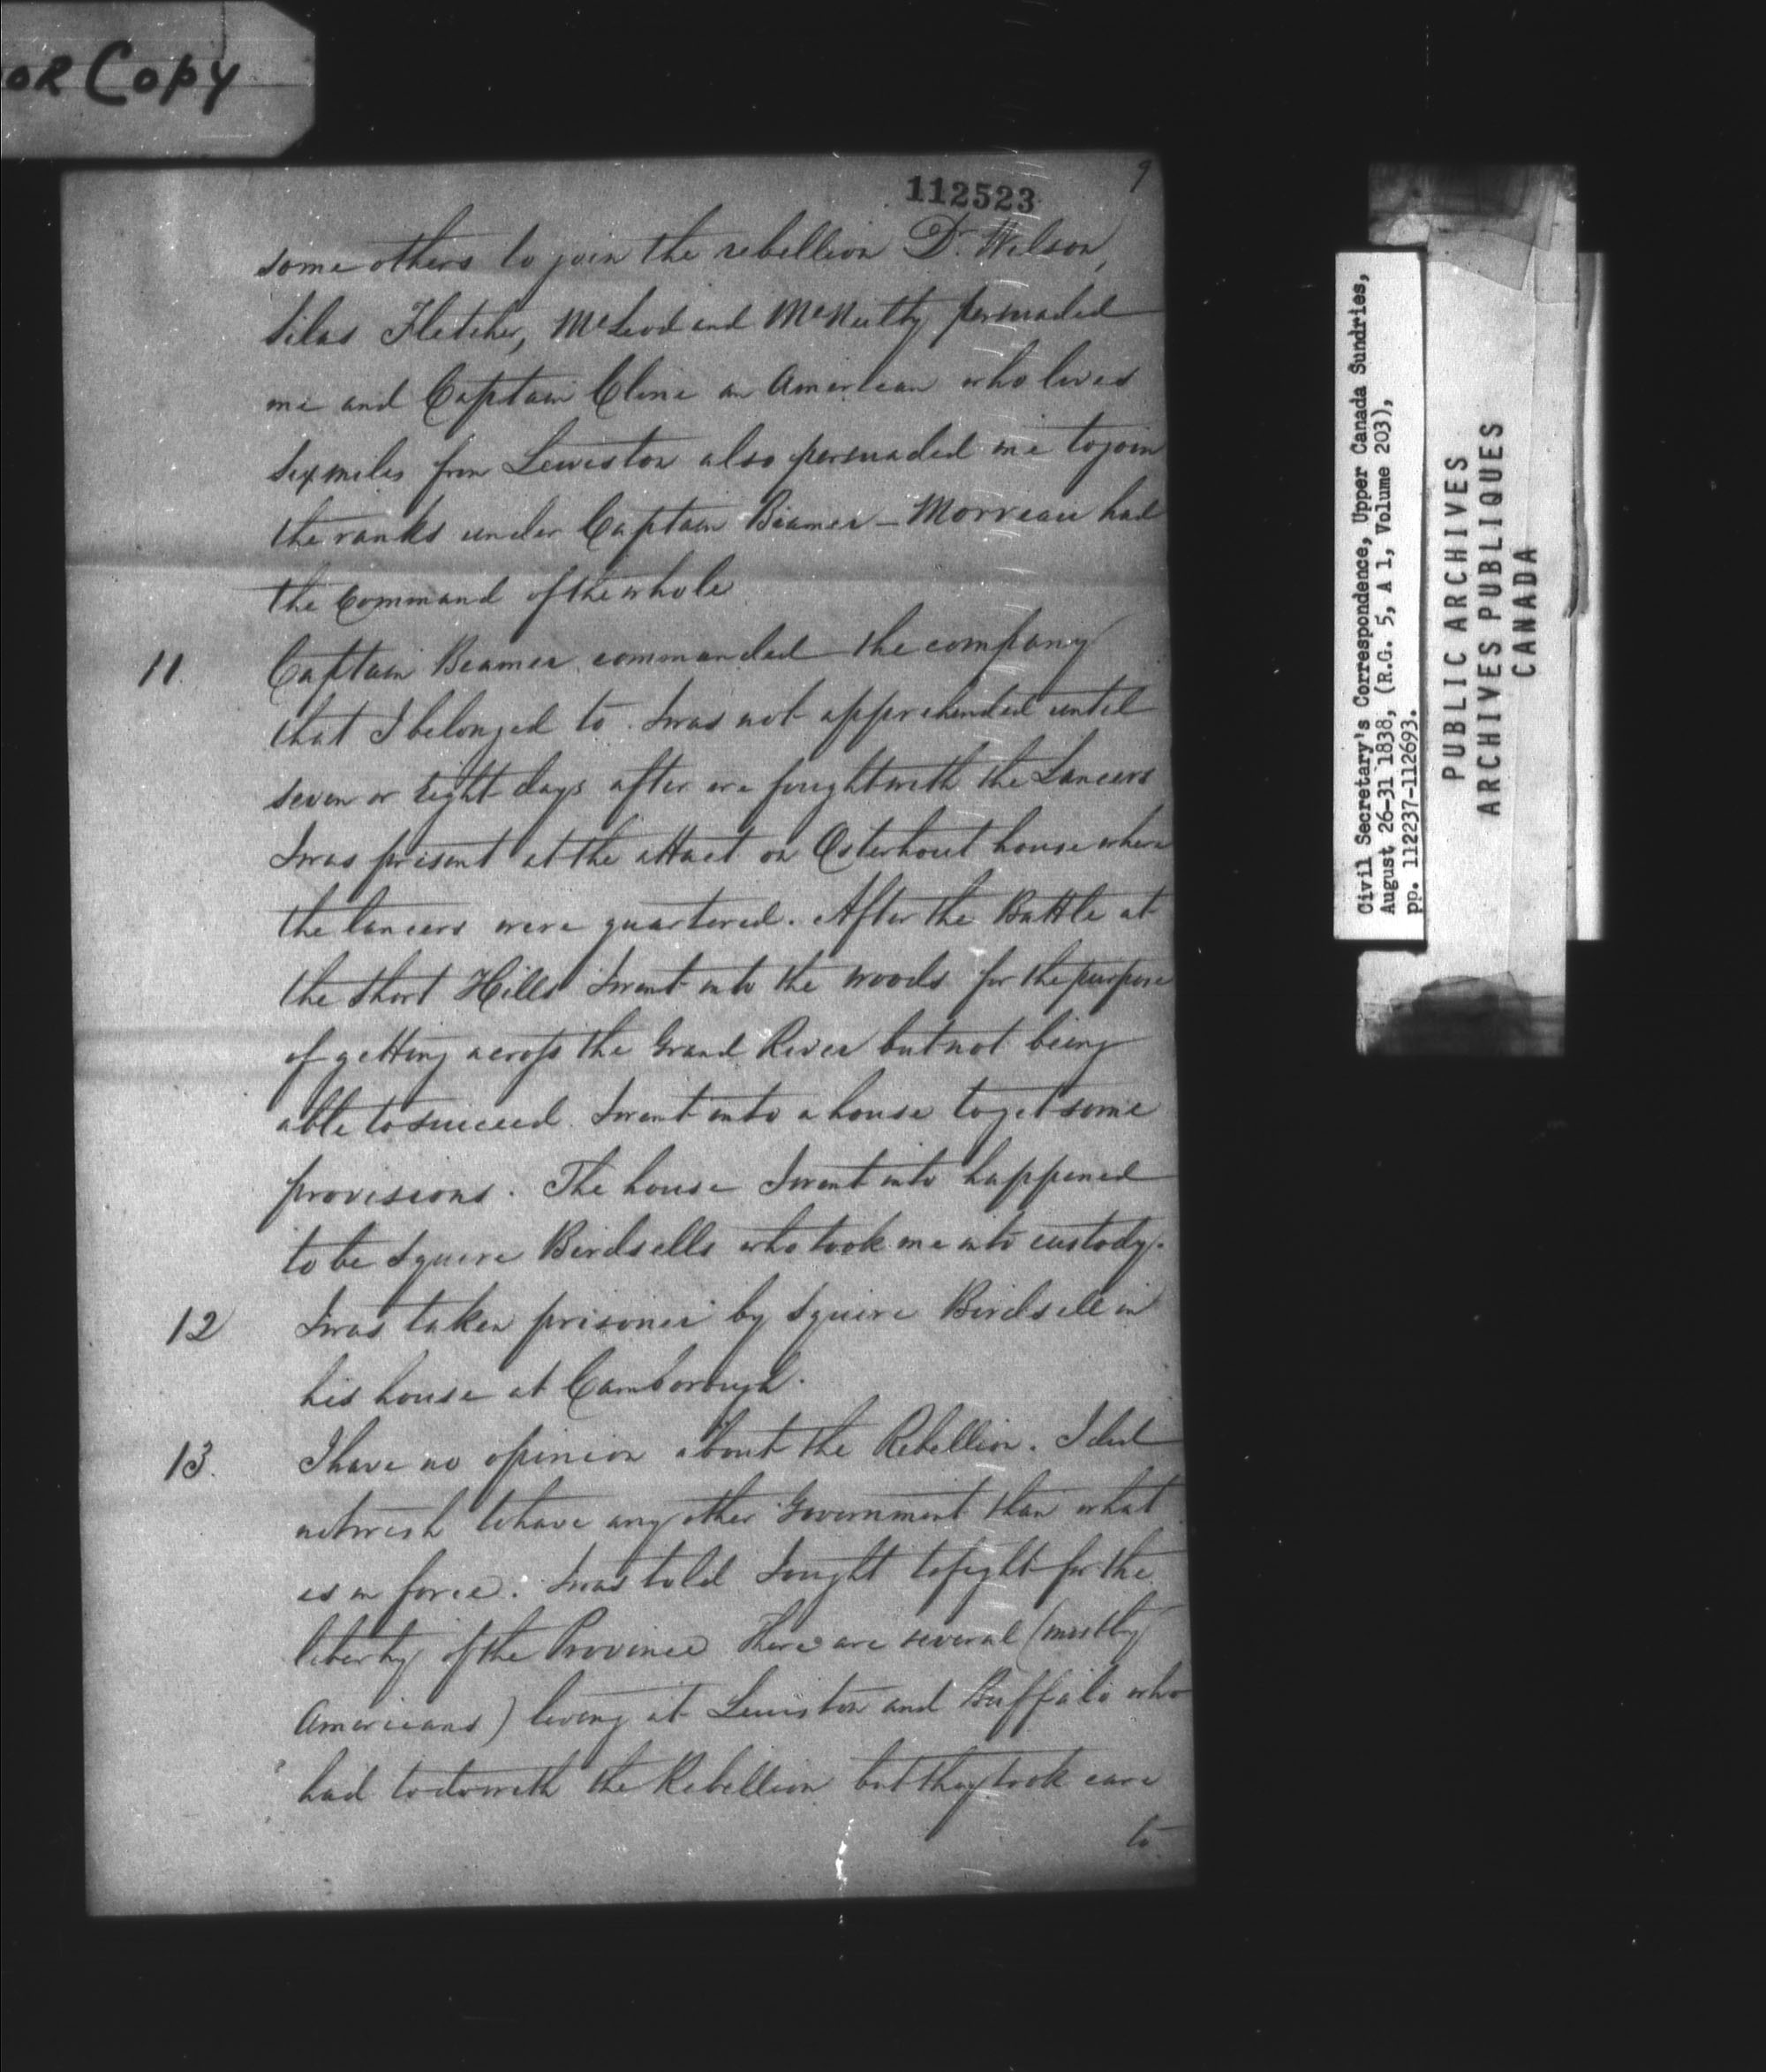 OR Copy
9
112523
some others to join the rebellion Dr. Wilson,
Silas Fletcher, McLeod and McNulty persuaded
me and Captain Cline an American who lives
Six miles from Lewiston also persuaded me to join
the ranks under Captain Beamer – Morreau had
the Command of the whole
11. Captain Beamer commanded the company
that I belonged to. I was not apprehended until
seven or Eight days after we fought with the Lancers
I was present at the attact on Osterhout house where
the lancers were quartered. After the Battle at
the Short Hills I went into the woods for the purpose
of getting across the Grand River but not being
able to succeed I went into a house to get some
provisions. The house I went into happened
to be Squire Birdsells who took me into custody.
12 I was taken prisoner by Squire Birdsell in
his house at Camborough.
13. I have no opinion about the Rebellion. I did
not wish to have any other Government than what
is in force. I was told I ought to fight for the
liberty of the Province There are several (mostly
Americans) living at Lewiston and Buffalo who
had to do with the Rebellion but they took care
to
Civil Secretary's Correspondence, Upper Canada Sundries,
August 26-31 1838, (R.G. 5, A 1, Volume 203),
pp. 112237-112693.
PUBLIC ARCHIVES
ARCHIVES PUBLIQUES
CANADA